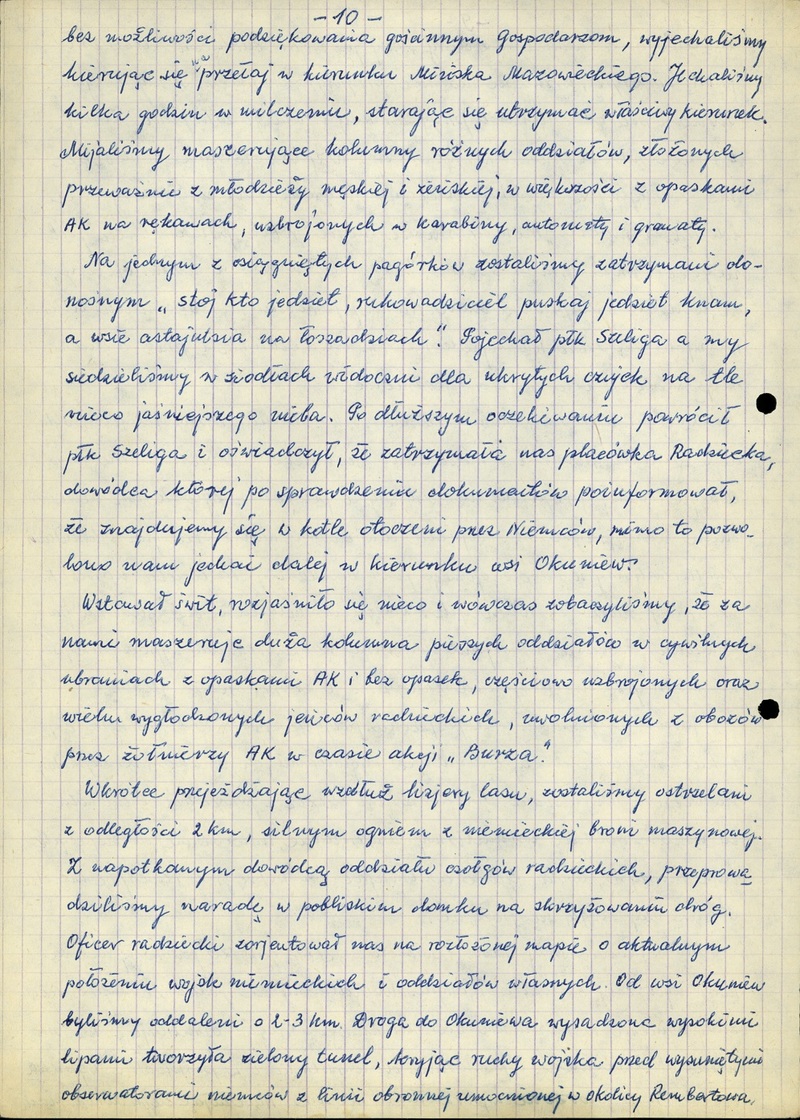 - 10 -
bez możliwości podziękowania gościnnym gospodarzom, wyjechaliśmy
kierując się na przełaj w kierunku Mińska Mazowieckiego. Jechaliśmy
kilka godzin w milczeniu, starając się utrzymać właściwy kierunek.
Mijaliśmy maszerujące kolumny różnych oddziałów, złożonych
przeważnie z młodzieży męskiej i żeńskiej, w większości z opaskami
AK na rękawach, uzbrojonych w karabiny, automaty i granaty.
Na jednym z osiągniętych pagórków zostaliśmy zatrzymani do-
nośnym „stoj kto jedziet, rukowadziciel puskaj jedziet knam,
a wsie astajutsia na łoszadziach". Pojechał płk Szeliga a my
siedzieliśmy w siodłach widoczni dla ukrytych czujek na tle
nieco jaśniejszego nieba. Po dłuższym oczekiwaniu powrócił
płk Szeliga i oświadczył, że zatrzymała nas placówka Radziecka,
dowódca której po sprawdzeniu dokumentów poinformował,
że znajdujemy się w kotle otoczeni przez Niemców, mimo to pozwo-
lono nam jechać dalej w kierunku wsi Okuniew.
Wstawał świt, rozjaśniło się nieco i wówczas zobaczyliśmy, że za
nami maszeruje duża kolumna pieszych oddziałów w cywilnych
ubraniach z opaskami AK i bez opasek, częściowo uzbrojonych oraz
wielu wygłodzonych jeńców radzieckich, uwolnionych z obozów
przez żołnierzy AK w czasie akcji „Burza".
Wkrótce przejeżdżając wzdłuż lizjery lasu, zostaliśmy ostrzelani
z odległości 2 km, silnym ogniem z niemieckiej broni maszynowej.
Z napotkanym dowódcą oddziału czołgów radzieckich, przeprowa-
dziliśmy naradę w pobliskim domku na skrzyżowaniu dróg.
Oficer radziecki zorjentował nas na rozłożonej mapie o aktualnym
położeniu wojsk niemieckich i oddziałów własnych. Od wsi Okuniew
byliśmy oddaleni o 2-3 km. Droga do Okuniewa wysadzona wysokimi
lipami tworzyła zielony tunel, kryjąc ruchy wojska przed wysuniętymi
obserwatorami niemców z linii obronnej umocnionej w okolicy Rembertowa,